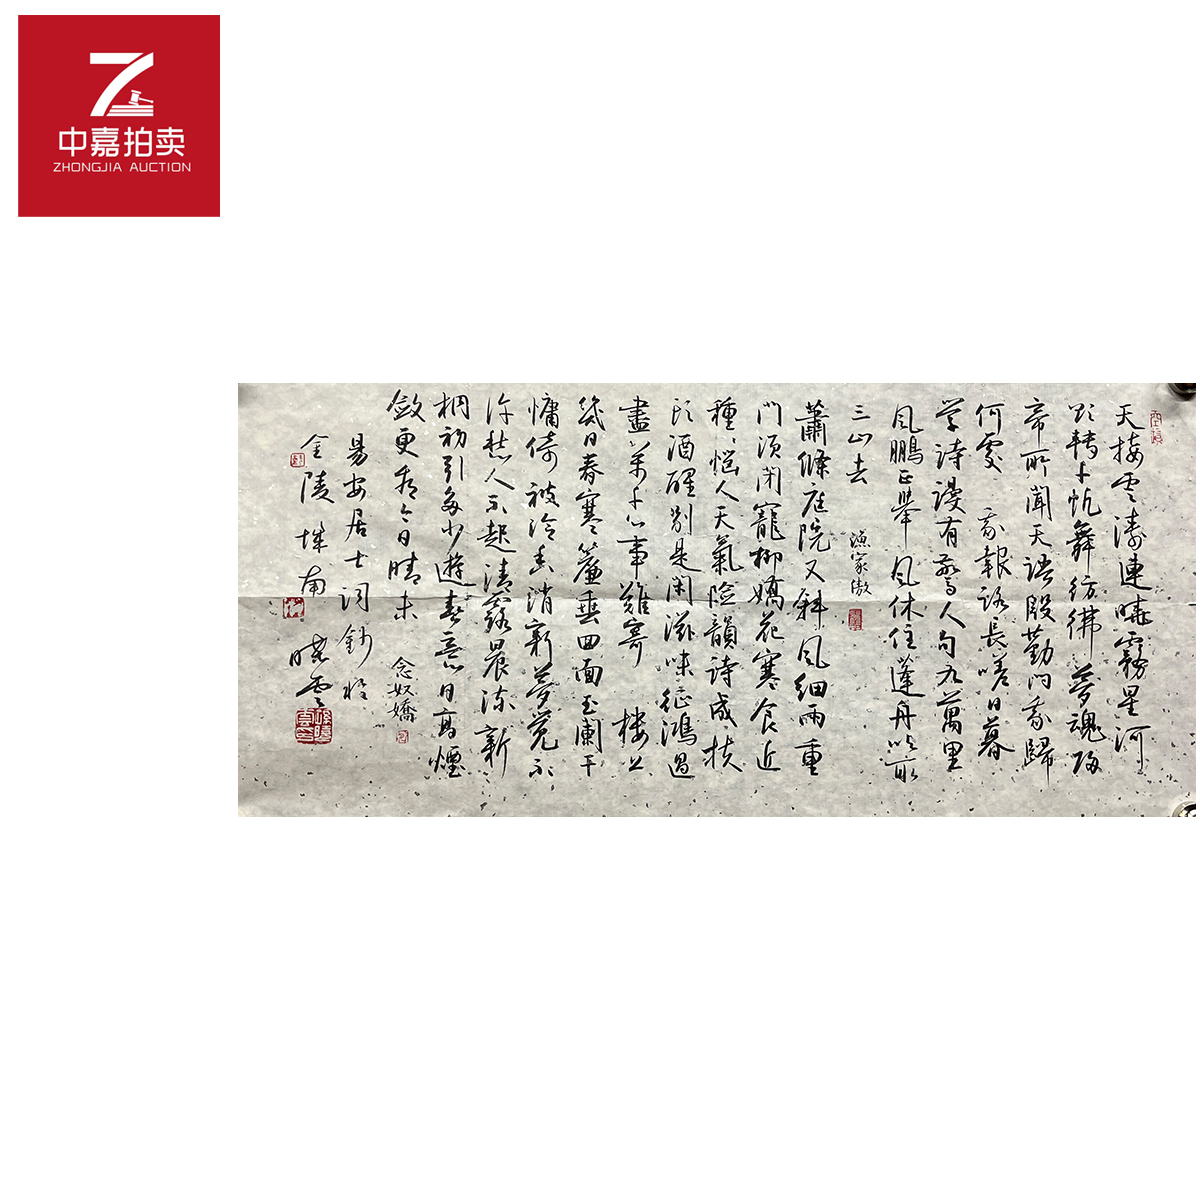 中嘉拍卖
ZHONGJIA AUCTION
天接雲濤連曉霧星河
欲轉千帆舞彷彿夢魂歸
帝所聞天語殷勤問我歸
何處 我報路長嗟日暮
学詩謾有驚人句九萬里
風鵬正舉風休住蓬舟吹取
三山去 漁家傲
蕭條庭院又斜風細雨重
門須閉寵柳嬌花寒食近
種種惱人天氣險韻詩成扶
頭酒醒別是閑滋味征鴻過
盡萬千心事難寄 樓上
幾日春寒簾垂四面玉闌干
慵倚被冷香消新夢覺不
許愁人不起清露晨流新
桐初引多少遊春意日高煙
斂更看今日晴未
念奴嬌
易安居士詞鈔於
金陵城南
曉雲